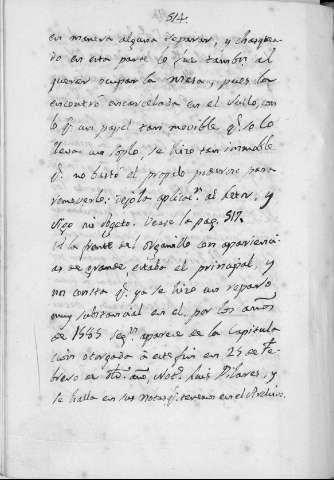 514.
en manera alguna reparar, y chasquea-
do en esta parte lo fue tambn. al
querer ocupar la mesa, pues la
encontró encarcelada en el suelo, con
lo q. un papel tan movible q. solo lo
lleva un soplo, se hizo tan inmoble
q. no bastó el propio para
removerle: dejo la aplicacn. al Letor, y
sigo mi Vease la pag. 517.
a la frente del Organillo con aparienci
as de grande, estaba el principal, y
nos consta q. ya se hizo un reparo
muy substancial en el, por los años
de 1555 segn. aparece de la Capitula
cion otorgada á este fin en 25 de Fe
brero de dho. año, Noto. Luis Pilares, y
se halla en sus Notas q. tenemos en el Archivo.